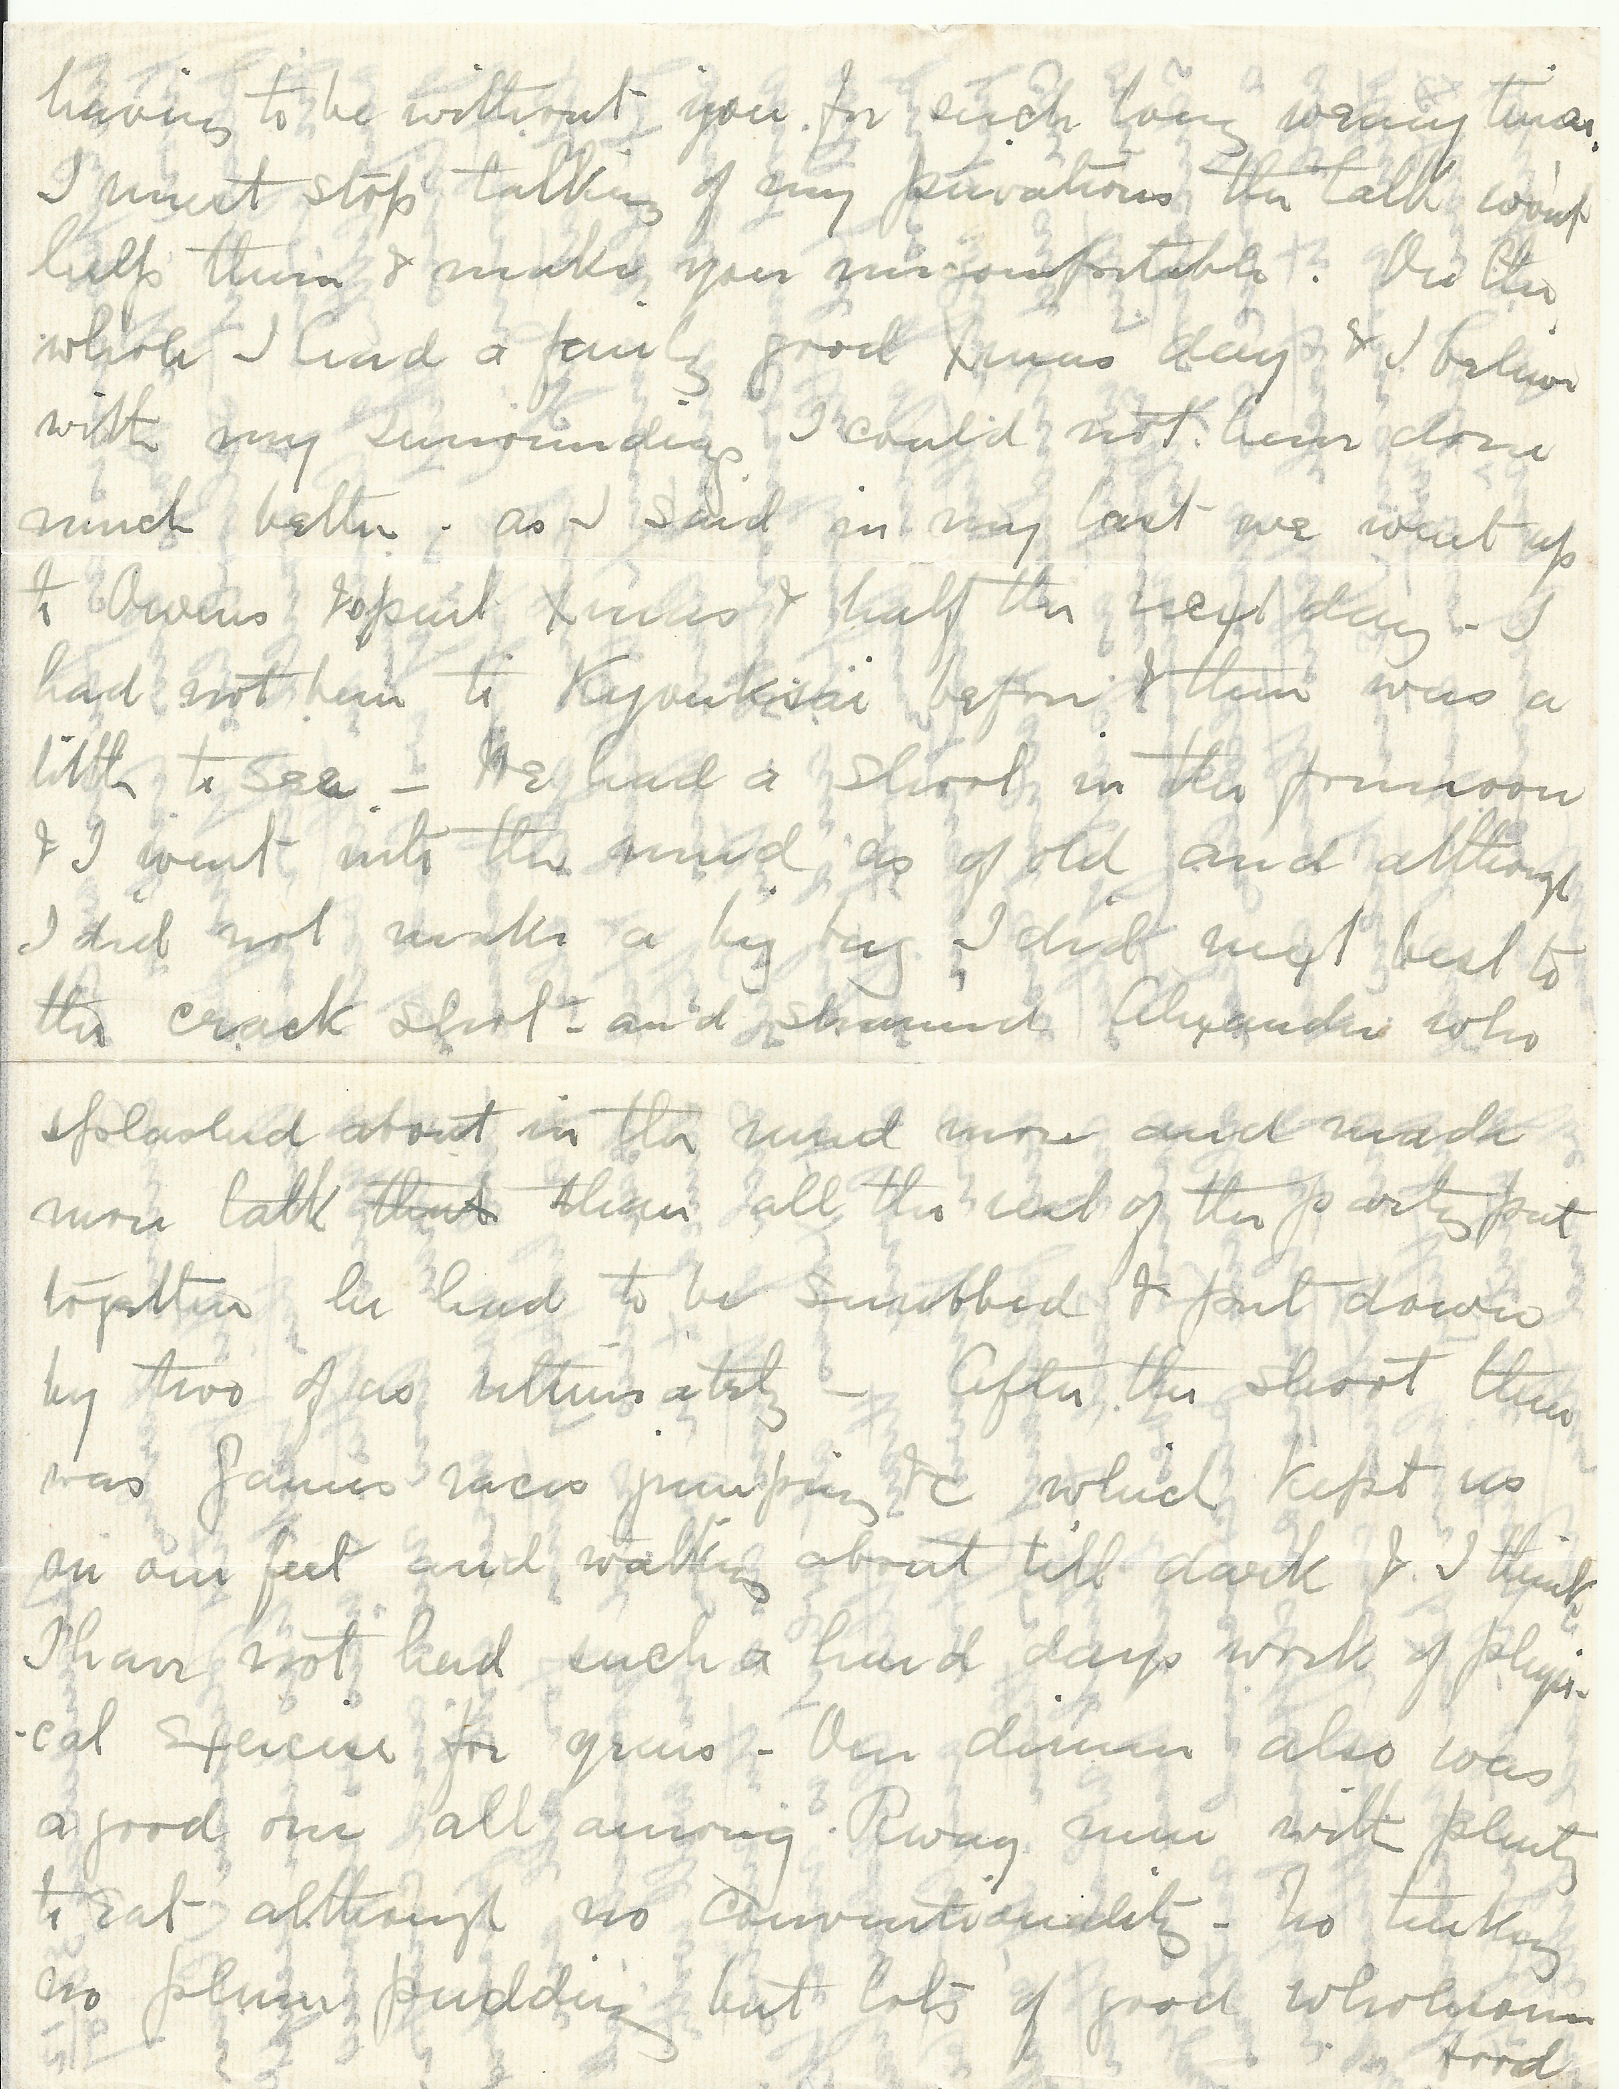 having to be without you for such long weary times.
I must stop talking of my privations the talk won't
help them & make you uncomfortable. On the
whole I had a fairly good Xmas day & I believe
with my surroundings I could not have done
much better. as I said in my last we went up
to Owens & spent Xmas & half the next day - I
had not been to Kyouksai before & there was a
little to see. - We had a shoot in the forenoon
& I went into the mud as of old and although
I did not make a big bag I did next best to
the crack shot - and shamed Alexander who
splashed about in the mud more and made
more talk that than all the rest of the party put
together he had to be snubbed & put down
by two of us ultimately - After the shoot there
was games races jumping &c which kept us
on our feet and walking about till dark & I think
I have not had such a hard days work of physi-
-cal exercise for years - Our dinner also was
a good one all among Rway men with plenty
to eat although no conventionality - No turkey
no plum pudding but lots of good wholesome
food